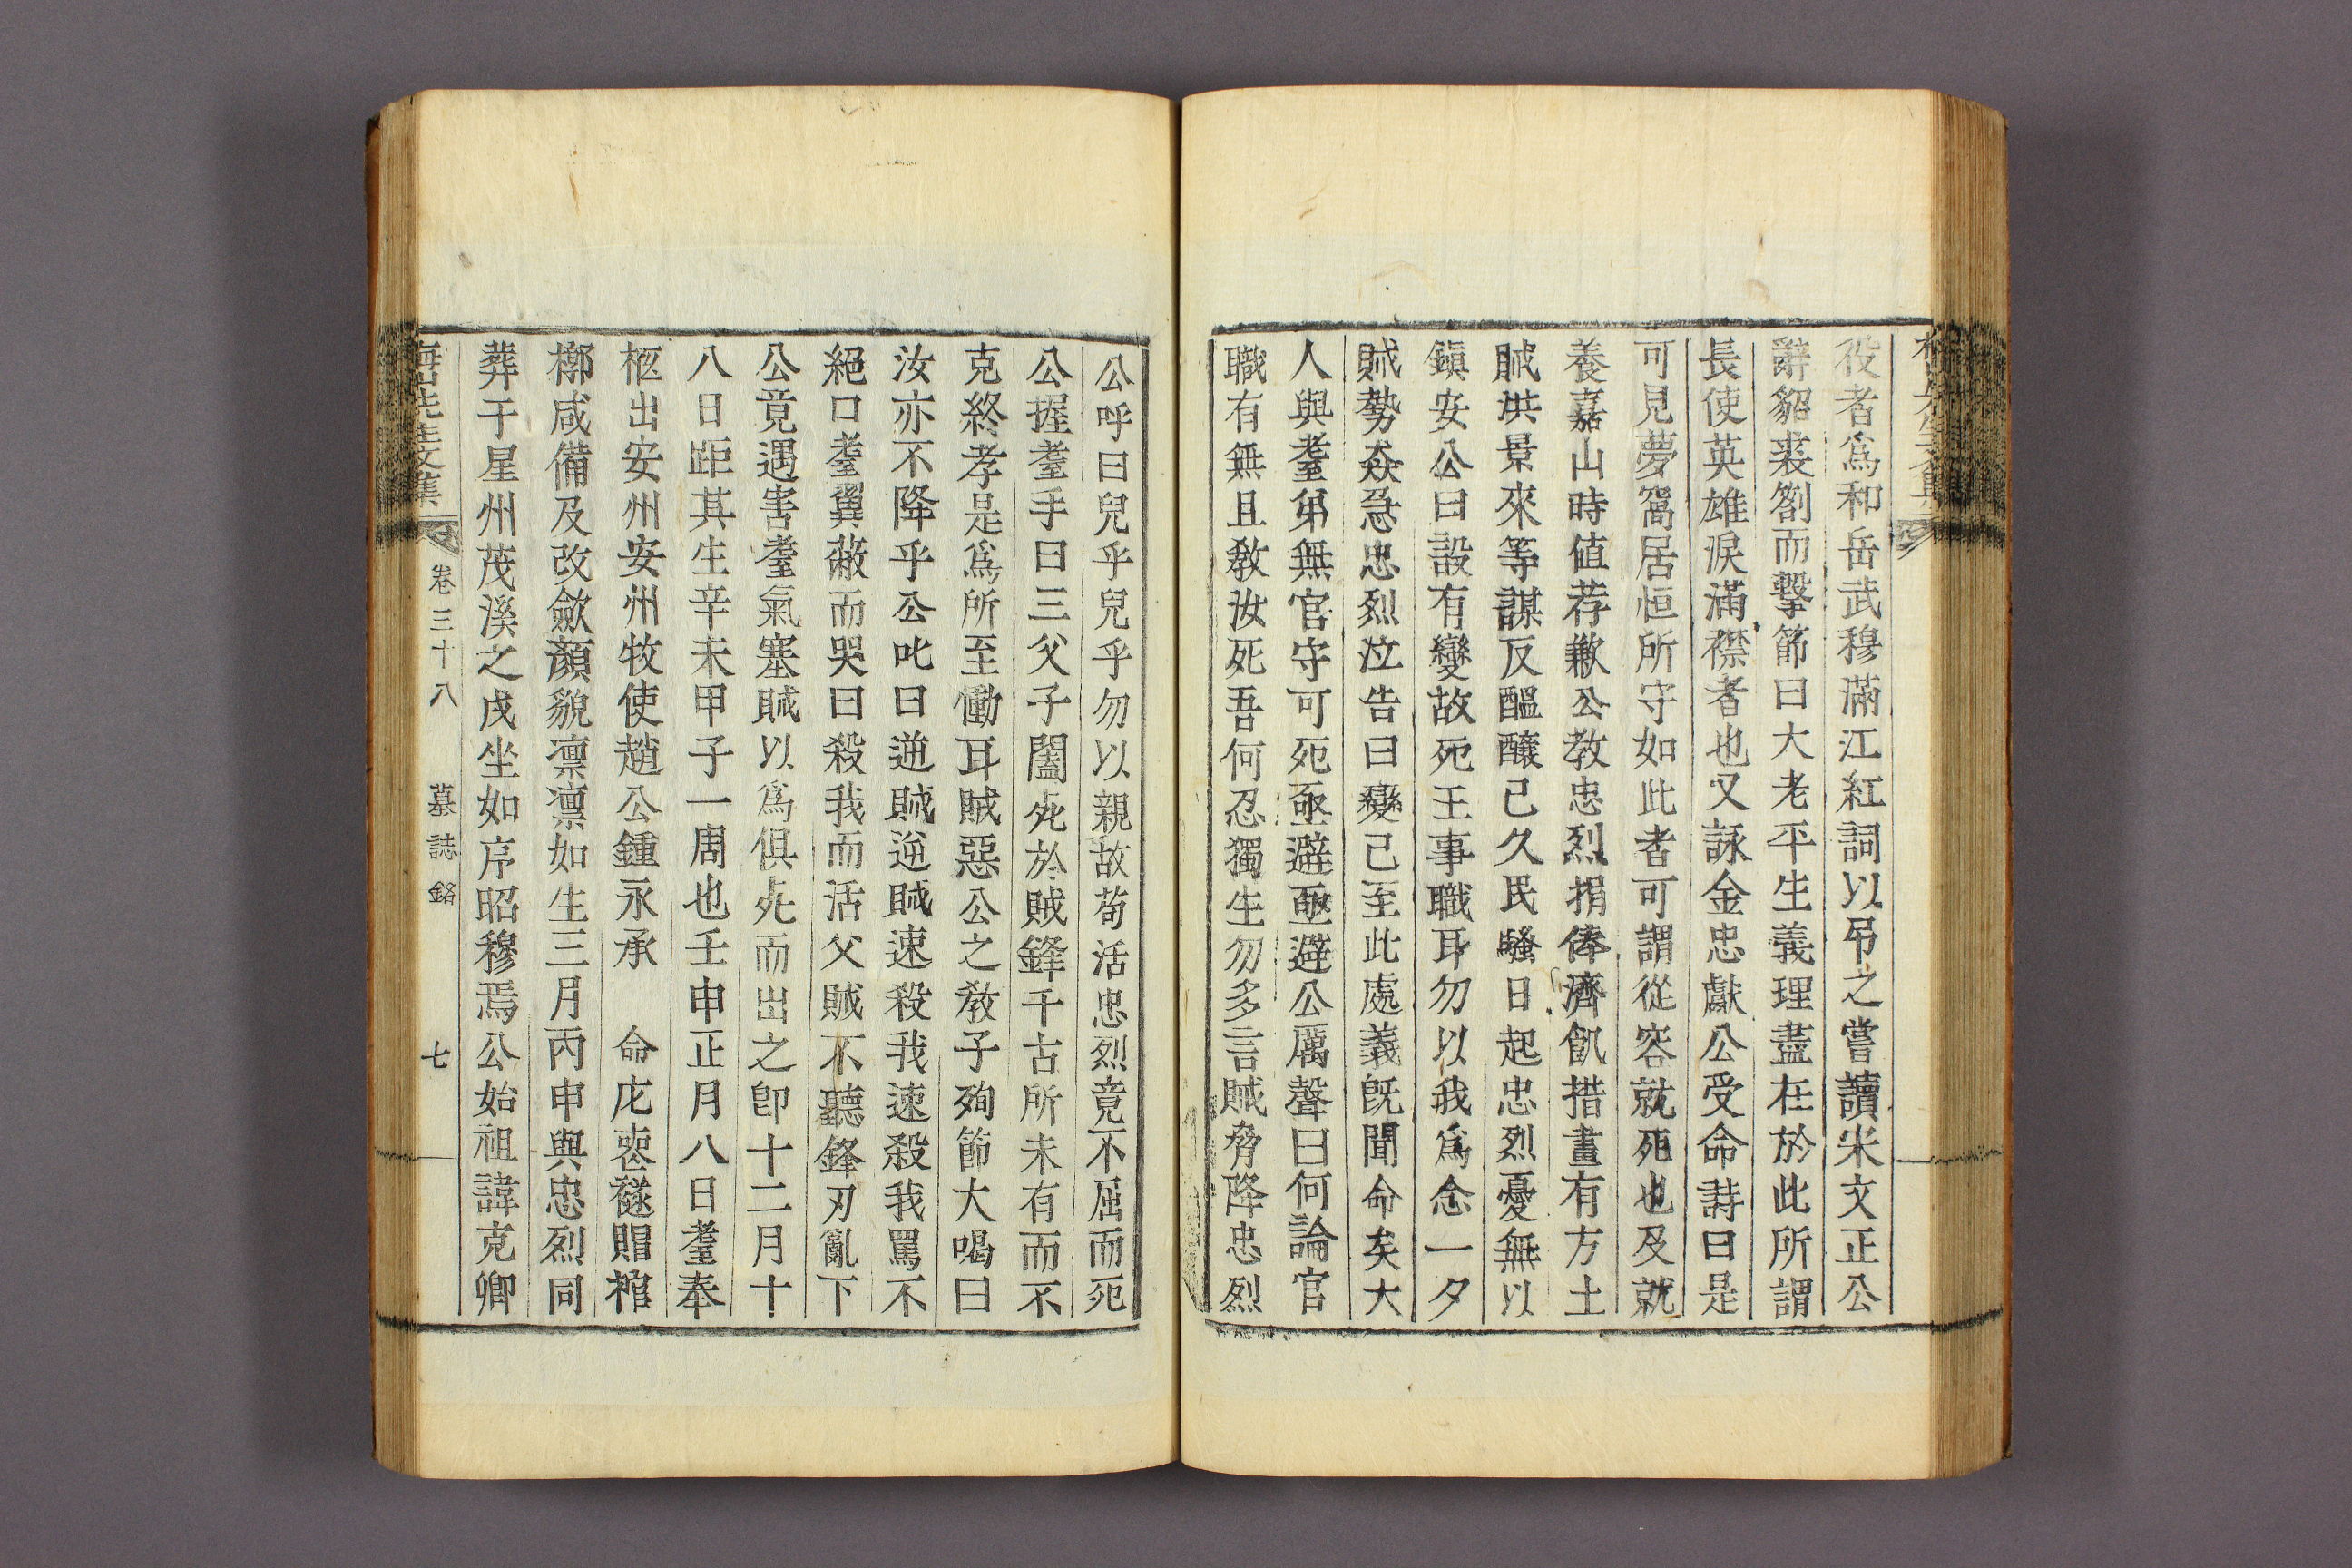 役者爲和岳武穆滿江紅詞以吊之嘗讀宋文正公
辭貂裘劄而擊節曰大老平生義理盡在於此所謂
長使英雄淚滿襟者也又詠金忠獻公受命詩曰是
可見夢寤居恒所守如此者可謂從容就死也及就
養嘉山時値荐歉公敎忠烈捐俸濟飢措畫有方土
賊洪景來等謀反醞釀已久民騷日起忠烈憂無以
鎭安公曰設有變故死王事職耳勿以我爲念一夕
賊勢焱急忠烈泣告曰變已至此處義旣聞命矣大
人與耋弟無官守可死亟避亟避公厲聲曰何論官
職有無且敎汝死吾何忍獨生勿多言賊脅降忠烈
公呼曰兒乎兒乎勿以親故苟活忠烈竟不屈而死
公握耋手曰三父子闔死於賊鋒千古所未有而不
克終孝是爲所至慟耳賊惡公之敎子殉節大喝曰
汝亦不降乎公叱曰逆賊逆賊速殺我速殺我罵不
絕口耋翼蔽而哭曰殺我而活父賊不聽鋒刃亂下
公竟遇害耋氣塞賊以爲俱死而出之卽十二月十
八日距其生辛未甲子一周也壬申正月八日耋奉
柩出安州安州牧使趙公鍾永承　命庀喪襚賵棺
槨咸備及改斂顏貌凛凛如生三月丙申與忠烈同
葬于星州茂溪之戌坐如序昭穆焉公始祖諱克卿
先生文集　卷三十八　墓誌銘　七